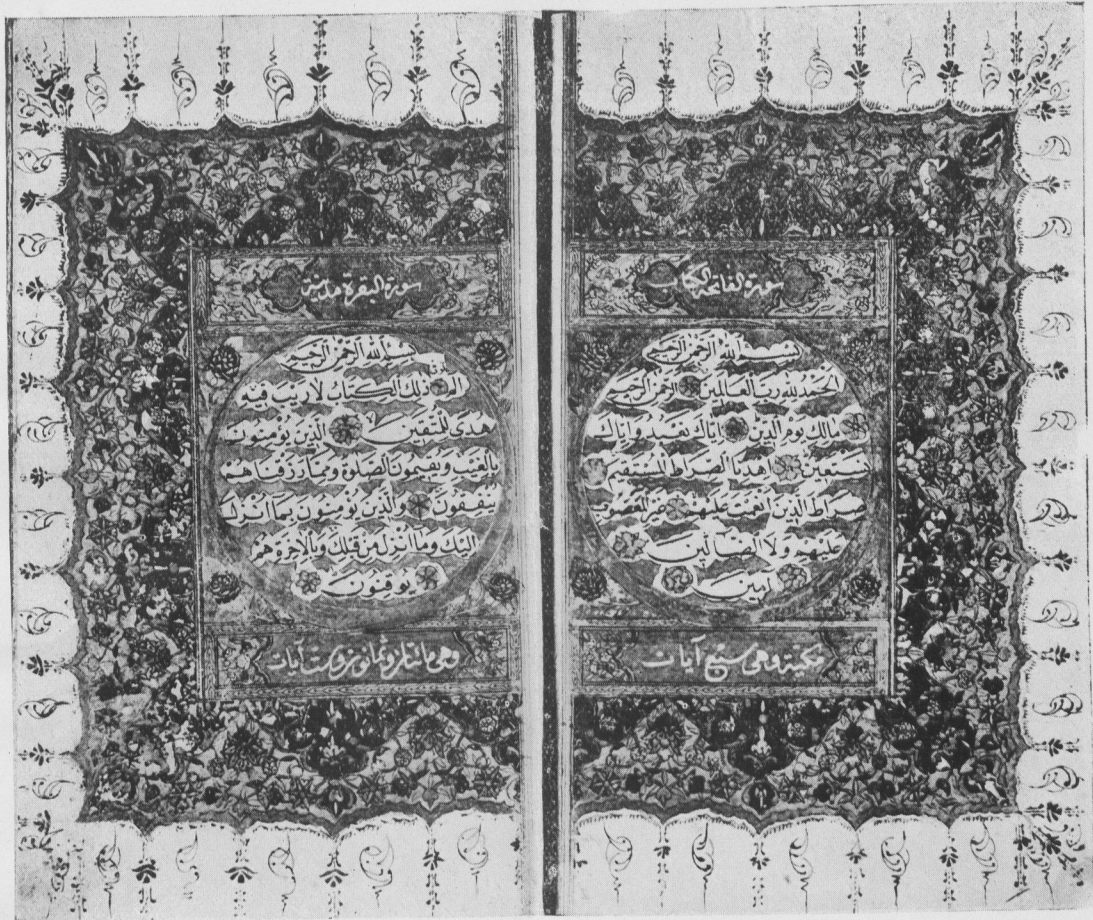 سورة الفاتحة الكتاب
بسم الله الرحمن الرحيم
الحمد لله رب العالمين الرحمن الرحيم
مالك يوم الدين اياك نعبد واياك
نستعين اهدنا الصراط المستقيم
صراط الذين انعمت عليهم غير المغضوب
عليهم ولا الضالين
امين
مكية وهى سبع آيات
سورة البقرة مدنية
بسم الله الرحمن الرحيم
الم ذلك الكتاب لا ريب فيه
هدى للمتقين الذين يؤمنون
بالغيب ويقيمون الصلوة ومما رزقناهم
ينفقون والذين يؤمنون بما انزل
اليك وما انزل من قبلك وبالاخرة هم
يوقنون
وهى مائتان وثمانون وست آيات